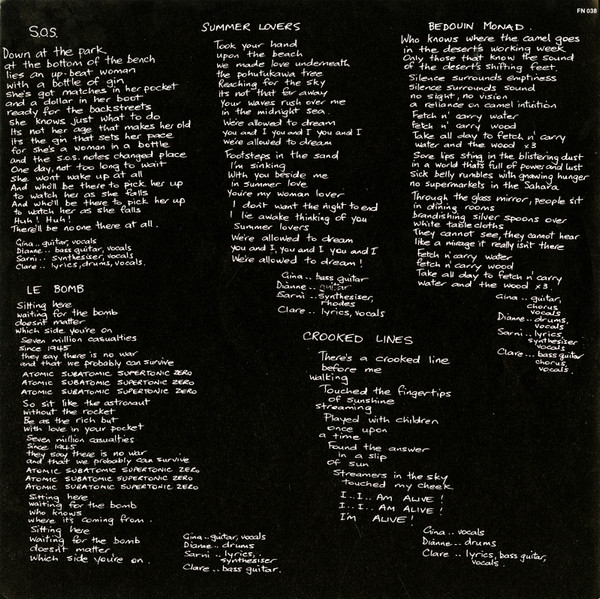 FN 038
S.O.S.
Down at the park
at the bottom of the bench
lies an up-beat woman
with a bottle of gin
she's got matches in her pocket
and a dollar in her boot
ready for the backstreets
she knows just what to do
Its not her age that makes her old
it's the gin that sets her pace
for she's a woman in a bottle
and the S.O.S. notes changed place
One day, not too long to wait
She wont wake up at all
And who'll be there to pick her up
to watch her as she falls
And who'll be there to pick her up
to watch her as she falls
Huh! Huh!
There'll be no one there at all.
Gina.. guitar, vocals
Dianne.. bass guitar, vocals
Sarni.. synthesiser, vocals
Clare.. lyrics, drums, vocals.
LE BOMB
Sitting here
waiting for the bomb
doesn't matter
which side you're on
Seven million casualties
since 1945
they say there is no war
and that we probably can survive
ATOMIC SUBATOMIC SUPERTONIC ZERO
ATOMIC SUBATOMIC SUPERTONIC ZERO
ATOMIC SUBATOMIC SUPERTONIC ZERO
So sit like the astronaut
without the rocket
Be as the rich but
with love in your pocket
Seven million casualties
Since 1945
they say there is no war
and that we probably can survive
ATOMIC SUBATOMIC SUPERTONIC ZERO
ATOMIC SUBATOMIC SUPERTONIC ZERO
ATOMIC SUBATOMIC SUPERTONIC ZERO
Sitting here
waiting for the bomb
Who knows
where it's coming from.
Sitting here
Waiting for the bomb
doesn't matter
Which side you're on.
Gina.. guitar, vocals
Dianne.. drums
Sarni.. lyrics,
synthesiser
Clare.. bass guitar.
SUMMER LOVERS
Took your hand
upon the beach
we made love underneath
the pohutukawa tree
Reaching for the sky
its not that far away
Your waves rush over me
in the midnight sea
We're allowed to dream
you and I you and I you and I
we're allowed to dream
Footsteps in the sand
I'm sinking
With you beside me
in summer love
You're my woman lover
I don't want the night to end
I lie awake thinking of you
Summer lovers
We're allowed to dream
you and I, you and I, you and I
We're allowed to dream!
Gina.. bass guitar
Dianne.. guitar
Sarni.. synthesiser,
rhodes
Clare.. lyrics, vocals
CROOKED LINES
There's a crooked line
before me
walking
Touched the fingertips
of sunshine
streaming
Played with children
once upon
a time
Found the answer
in a slip
of sun
Streamers in the sky
touched my cheek
I..I.. AM ALIVE!
I..I.. AM ALIVE!
I'M ALIVE!
Gina.. vocals
Dianne.. drums
Clare.. lyrics, bass guitar,
vocals.
BEDOUIN MONAD.
Who knows where the camel goes
in the desert's working week
Only those that know the sound
of the desert's shifting feet.
Silence surrounds emptiness
Silence surrounds sound
no sight, no vision
a reliance on camel intuition
Fetch n' carry water
fetch n' carry wood
Take all day to fetch n' carry
water and the wood x3
Sore lips sting in the blistering dust
in a world that's full of power and lust
Sick belly rumbles with gnawing hunger
no supermarkets in the Sahara
Through the glass mirror, people sit
in dining rooms
brandishing silver spoons over
white tablecloths
They cannot see, they cannot hear
like a mirage it really isn't there
Fetch n' carry water
fetch n' carry wood
Take all day to fetch n' carry
water and the wood x3!
Gina.. guitar,
chorus
vocals
Dianne.. drums,
vocals
Sarni.. lyrics,
synthesiser
vocals
Clare.. bass guitar
chorus,
vocals.